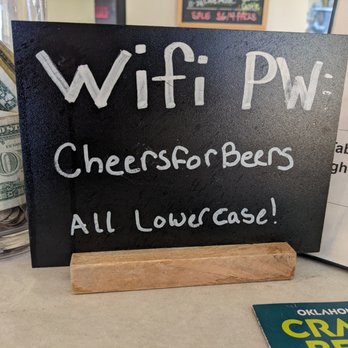 SALE
Wifi PW:
CheersForBeers
All Lowercase!
OKLAHO
CRA